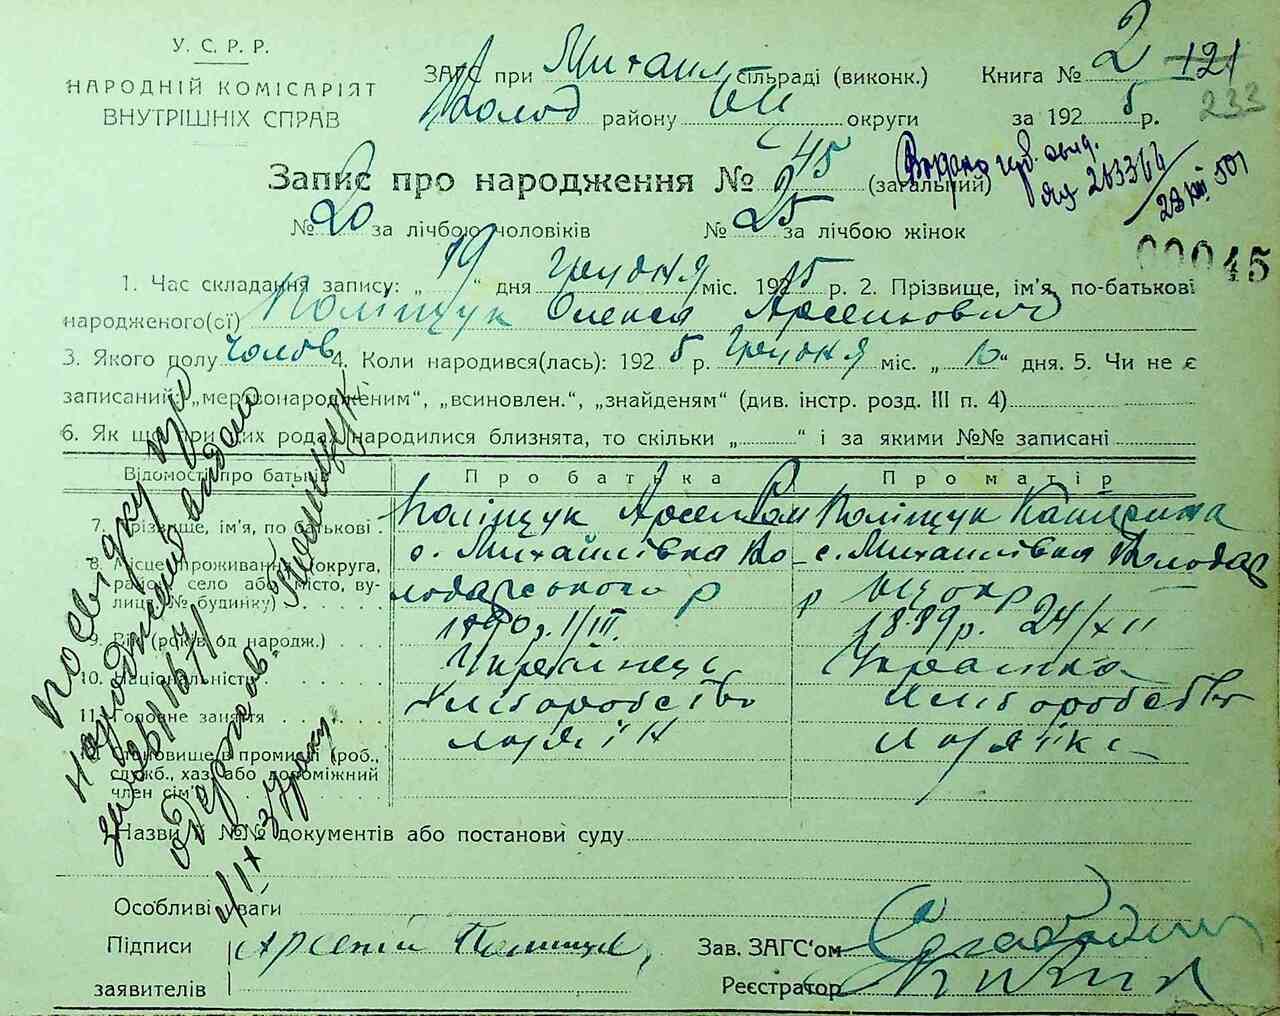 У. С. Р. Р.
НАРОДНІЙ КОМІСАРІЯТ
ВНУТРІШНІХ СПРАВ
ЗАГС при Михайл сільраді (виконк.) Книга № 2 121
Волод району БЦ округи за 1925 р. 233
Запис про народження № 45 (загальний)
Видано
23 VII 501
№ 20 за лічбою чоловіків № 25 за лічбою жінок
00045
1. Час складання запису: „19“ дня грудня міс. 1925 р. 2. Прізвище, ім'я, по-батькові
народженого(ої) Поліщук Олекса Арсенович
3. Якого полу чолов 4. Коли народився(лась): 1925 р. грудня міс. „10“ дня. 5. Чи не є
записаний: „мертвонародженим“, „всиновлен.“, „знайденям“ (див. інстр. розд. III п. 4)
6. Як що при цих родах народилися близнята, то скільки „ “ і за якими №№ записані
Відомості про батьків Про батька Про матір
7. Прізвище, ім'я, по батькові Поліщук Арсен Поліщук Катерина
8. Місце проживання (округа, с. Михайлівка Во- с. Михайлівка Володар
район, село або місто, ву-
лиця, № будинку) лодарського р р БЦ окр
9. Вік (років од народж.) 1890 р. 1/III. 1889 р. 24/XII
10. Національність Українець Українка
11. Головне заняття хліборобство хліборобство
12. Становище в промислі (роб.,
служб., хаз. або допоміжний
член сім'ї)
Назви й №№ документів або постанови суду
Особливі уваги
Підписи Арсеній Поліщук Зав. ЗАГС'ом
заявителів Реєстратор
посвідку про
народження видано
за №
одержав. Поліщук